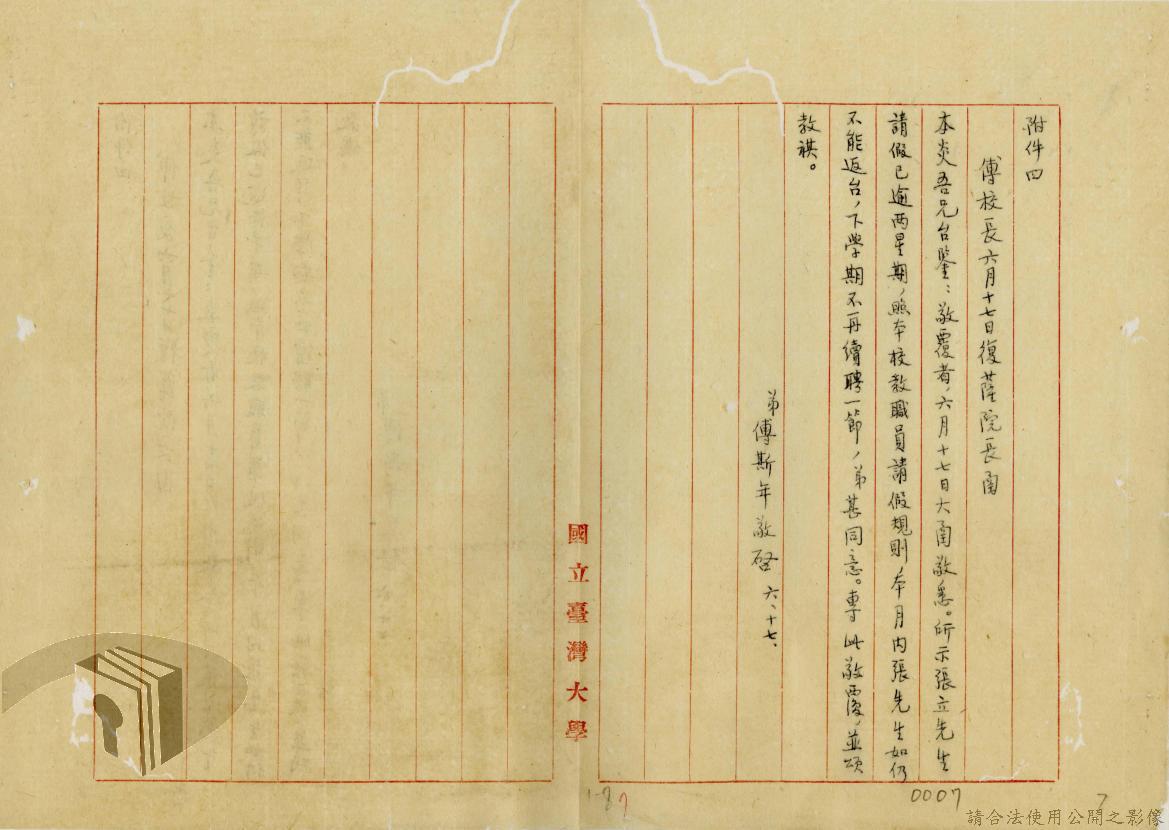 附件四
傅校長六月十七日復薩院長函
本炎吾兄台鑒：敬覆者，六月十七日大函敬悉。所示張立先生
請假已逾兩星期，照本校教職員請假規則，本月内張先生如仍
不能返台，下學期不再續聘一節，弟甚同意。專此敬覆，並頌
教祺。
弟傅斯年敬啓 六、十七、
國立臺灣大學
0007
7
請合法使用公開之影像